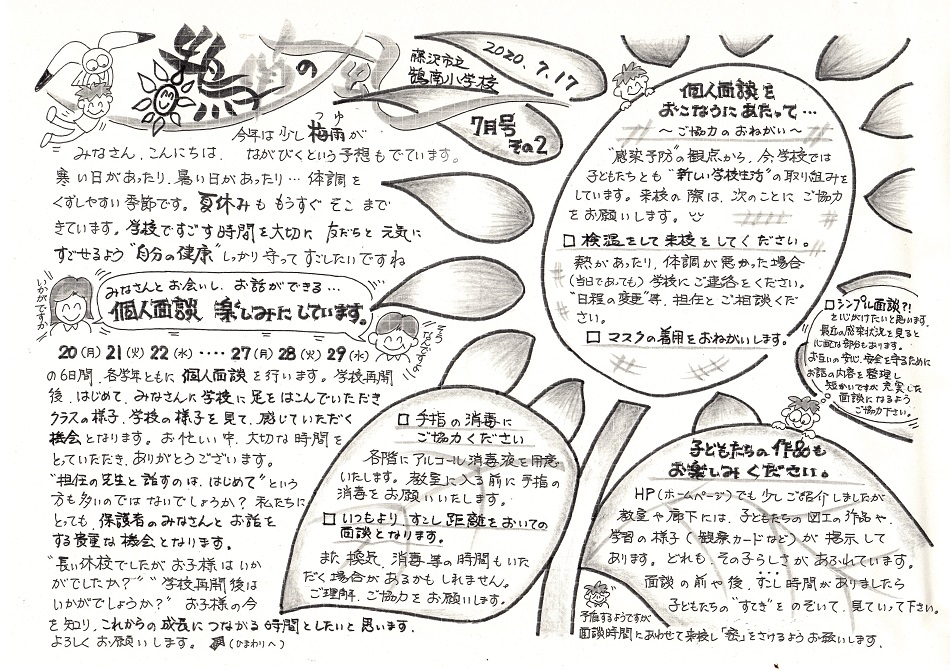 熱風の
藤沢市立
鵠南小学校
2020.7.17
7月号
その2
今年は少し梅雨が
つゆ
みなさん、こんにちは、ながびくという予想もでています。
寒い日があったり、暑い日があったり…体調を
くずしやすい季節です。夏休みももうすぐそこまで
きています。学校ですごす時間を大切に友だちと元気に
すごせるよう"自分の健康"しっかり守ってすごしたいですね
いかがですか
みなさんとお会いし、お話ができる…
個人面談 楽しみにしています。
20(月)21(火)22(水)‥‥27(月)28(火)29(水)
の6日間、各学年ともに個人面談を行います。学校再開
後、はじめて、みなさんに学校に足をはこんでいただき
クラスの様子、学校の様子を見て、感じていただく
機会となります。お忙しい中、大切な時間を
とっていただき、ありがとうございます。
"担任の先生と話すのは、はじめて"という
方も多いのではないでしょうか？私たちに
とっても、保護者のみなさんとお話を
する貴重な機会となります。
"長い休校でしたがお子様はいか
がでしたか？""学校再開後は
いかがでしょうか？"お子様の今
を知り、これからの成長につながる時間としたいと思います。
よろしくお願いします。(ひまわりへ)
個人面談を
おこなうにあたって…
～ご協力のおねがい～
"感染予防"の観点から、今学校では
子どもたちとも"新しい学校生活"の取り組みを
しています。来校の際は、次のことにご協力
をお願いします。
□検温をして来校をしてください。
熱があったり、体調が悪かった場合
(当日であっても)学校にご連絡をください。
"日程の変更"等、担任とご相談くだ
さい。
□マスクの着用をおねがいします。
□手指の消毒に
ご協力ください
各階にアルコール消毒液を用意
いたします。教室に入る前に手指の
消毒をお願いいたします。
□いつもより、すこし距離をおいての
面談となります。
また、換気、消毒等の時間もいた
だく場合があるかもしれません。
ご理解、ご協力をお願いします。
□シンプル面談？！
を心がけたいと思います。
最近の感染状況を見ると
心配な部分もあります。
お互いの安心、安全を守るために
お話の内容を整理し
短かいですが充実した
面談になるよう
ご協力下さい。
子どもたちの作品も
お楽しみください。
HP(ホームページ)でも少しご紹介しましたが
教室や廊下には、子どもたちの図工の作品や、
学習の様子(観察カードなど)が掲示して
あります。どれも、その子らしさがあふれています。
面談の前や後、すこし時間がありましたら
子どもたちの"すてき"をのぞいて、見ていって下さい。
予備するようですが
面談時間にあわせて来校し「密」をさけるようお願いします。